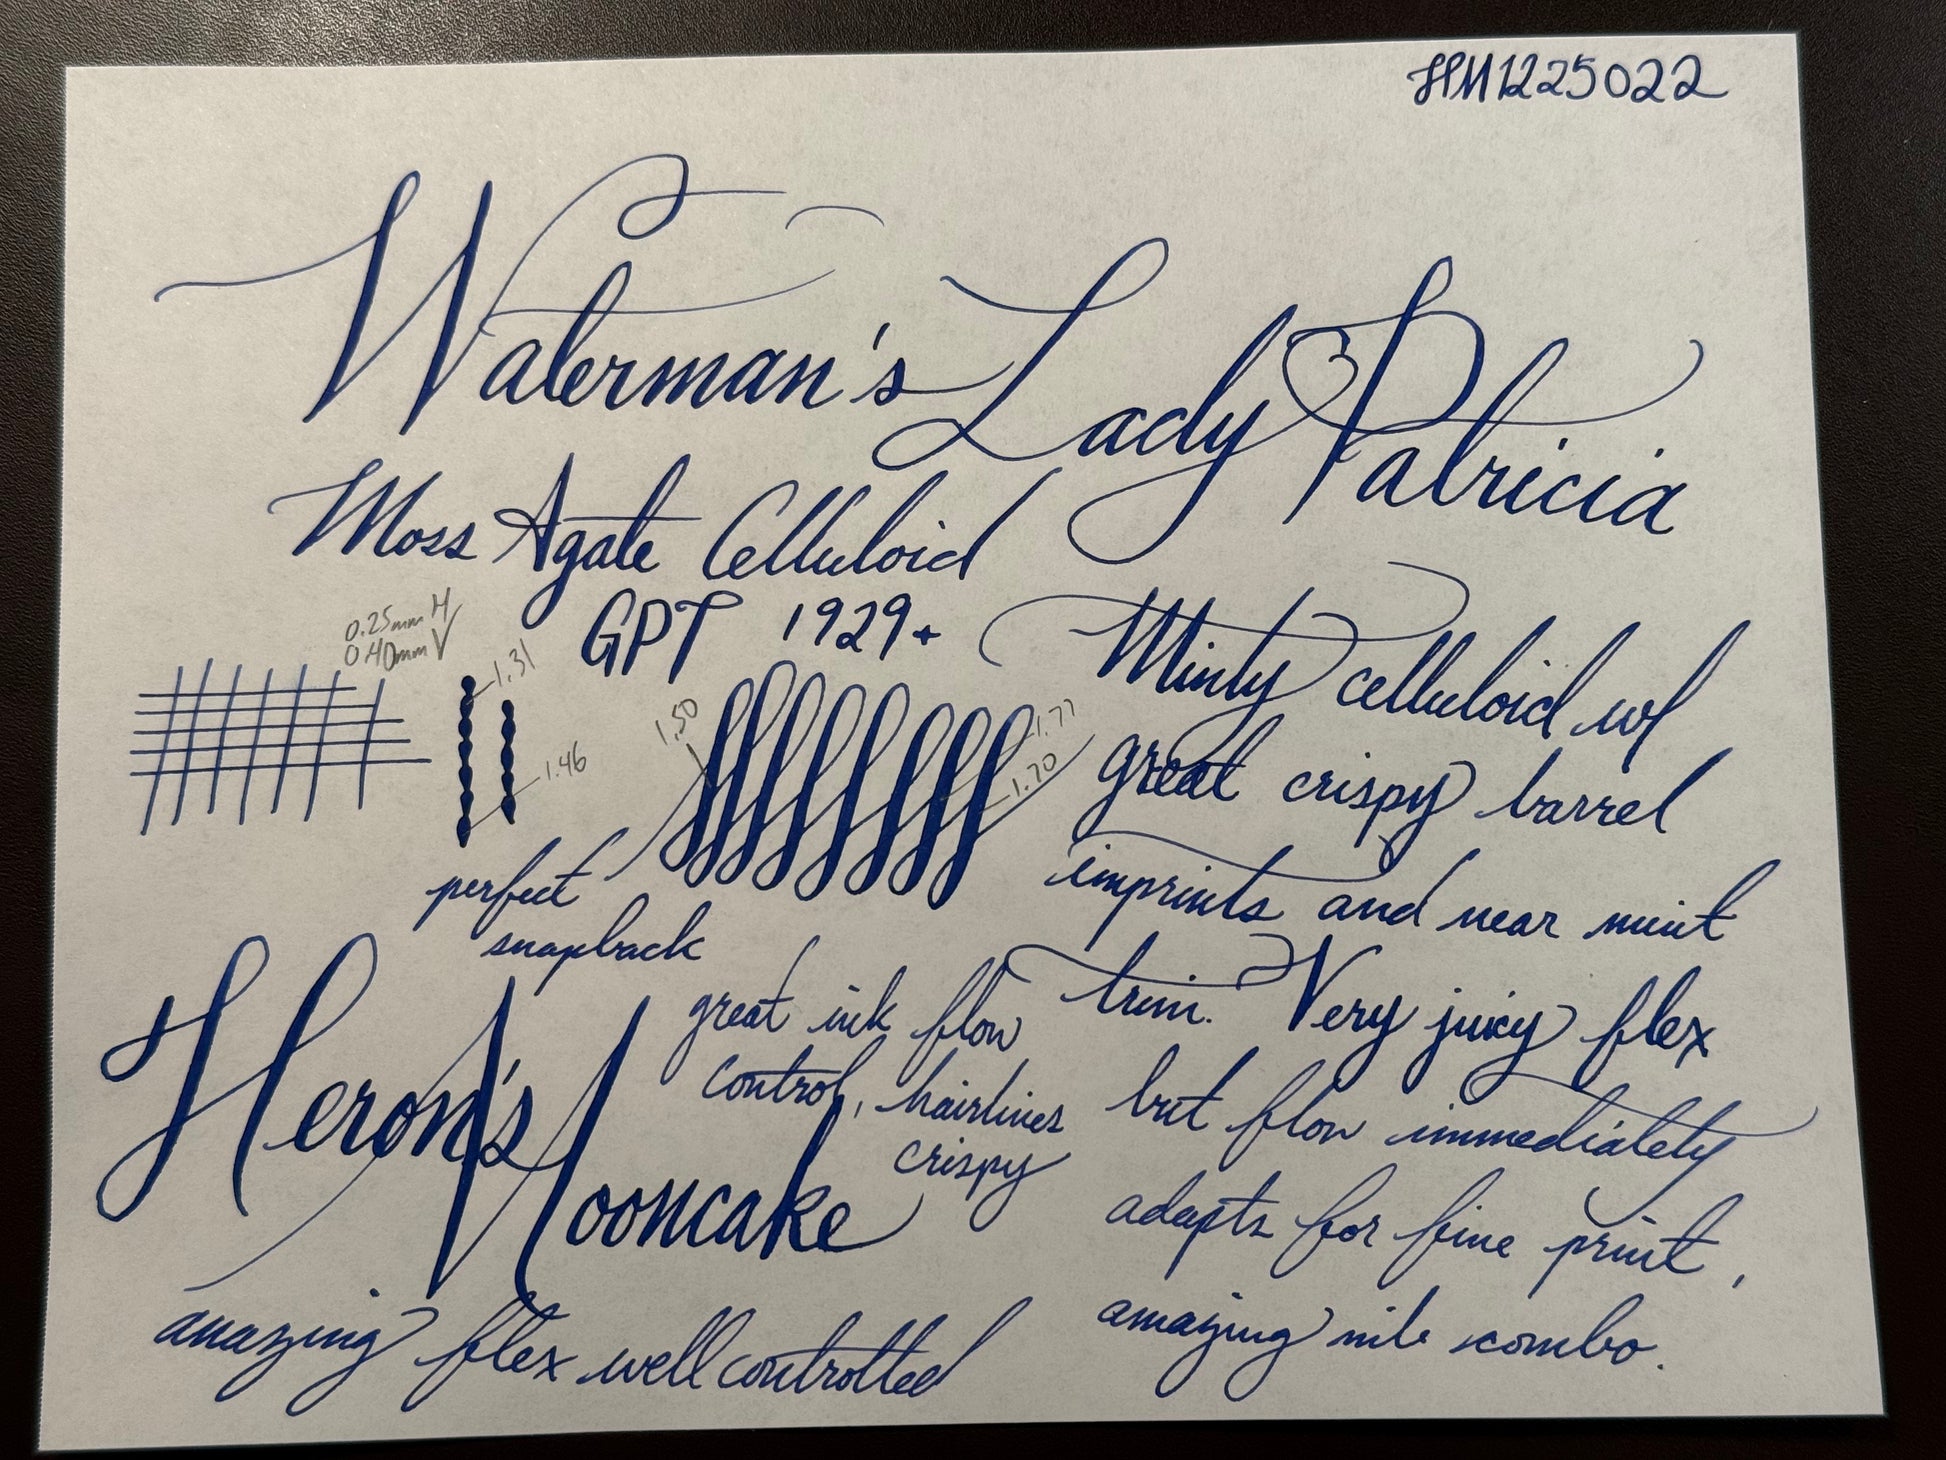 HM1225022
Waterman's Lady Patricia
Moss Agate Celluloid
GPT 1929+
0.25mm H
0.40mm V
1.31
1.46
1.50
1.77
1.70
perfect
snapback
Minty celluloid w/
great crispy barrel
imprints and near mint
trim. Very juicy flex
but flow immediately
adapts for fine print,
amazing nib combo.
great ink flow
control, hairlines
crispy
Heron's
Mooncake
amazing flex well controlled